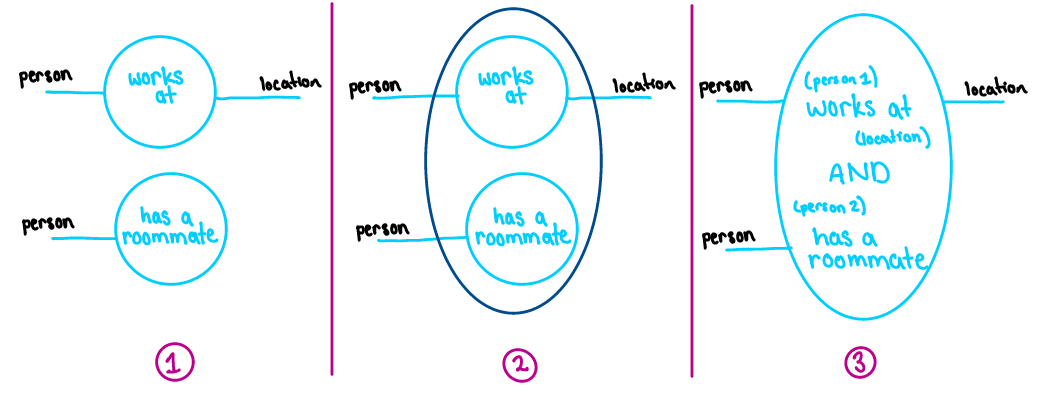 person
works
at
location
person
has a
roommate
1
person
works
at
location
person
has a
roommate
2
person
(person 1)
works at
(location)
location
AND
(person 2)
person
has a
roommate
3